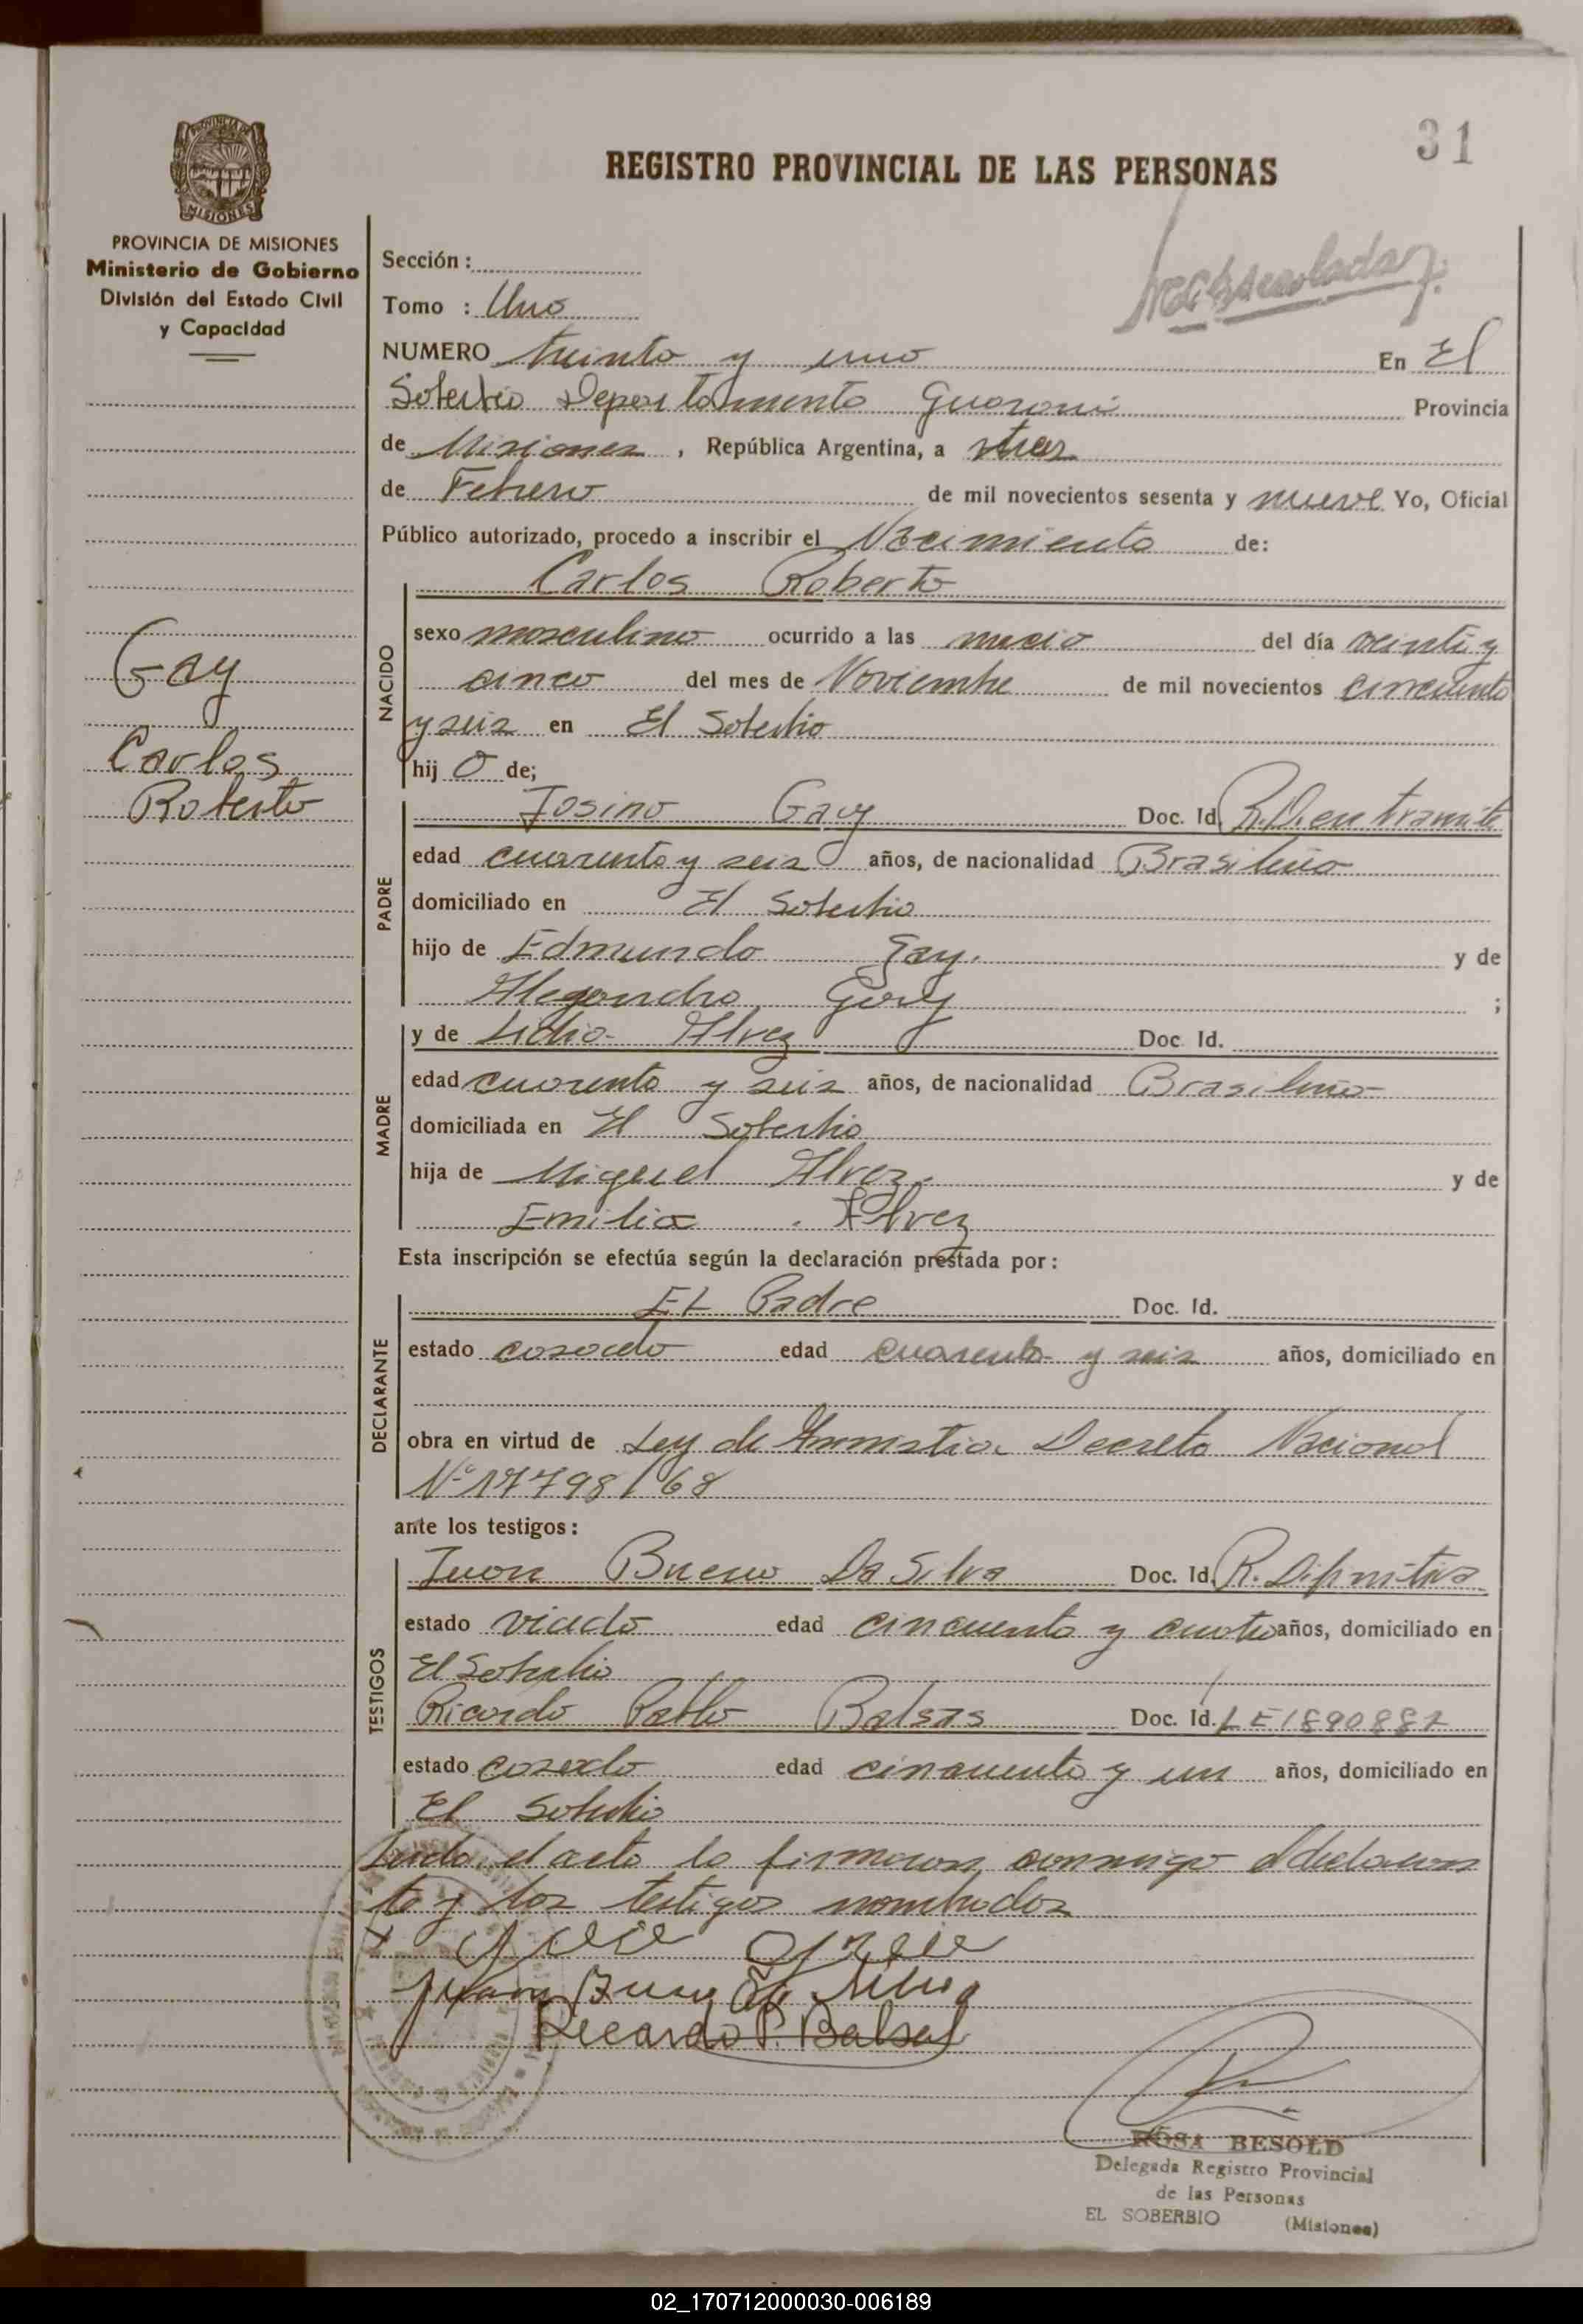 31
REGISTRO PROVINCIAL DE LAS PERSONAS
PROVINCIA DE MISIONES
Ministerio de Gobierno
División del Estado Civil
y Capacidad
Sección :
Tomo : Uno
NUMERO treinta y uno En El
Soberbio Departamento Guarani Provincia
de Misiones , República Argentina, a tres
de Febrero de mil novecientos sesenta y nueve Yo, Oficial
Público autorizado, procedo a inscribir el Nacimiento de:
Gay
Carlos
Roberto
NACIDO
Carlos Roberto
sexo masculino ocurrido a las nueve del día veinti y
cinco del mes de Noviembre de mil novecientos cincuenta
y seis en El Soberbio
hij o de;
PADRE
Josino Gay Doc. Id. R.D. en tramite
edad cuarenta y seis años, de nacionalidad Brasileño
domiciliado en El Soberbio
hijo de Edmundo Gay. y de
Alegandra Gay ;
MADRE
y de Lidia Alvez Doc. Id.
edad cuarenta y seis años, de nacionalidad Brasileña
domiciliada en El Soberbio
hija de Miguel Alvez. y de
Emilia Alvez
Esta inscripción se efectúa según la declaración prestada por :
DECLARANTE
El Padre Doc. Id.
estado casado edad cuarenta y seis años, domiciliado en
obra en virtud de Ley de Amnistia Decreto Nacional
Nº 17798/68
ante los testigos :
TESTIGOS
Juan Bueno Da Silva Doc. Id. R. Difinitiva
estado viudo edad cincuenta y cuatro años, domiciliado en
El Soberbio
Ricardo Pablo Balsas Doc. Id. LE 1890887
estado casado edad cincuenta y un años, domiciliado en
El Soberbio
Leida el acta la firmaron conmigo el declaran
te y los testigos nombrados
Ricardo P. Balsas
ROSA BESOLD
Delegada Registro Provincial
de las Personas
EL SOBERBIO (Misiones)
02_170712000030-006189